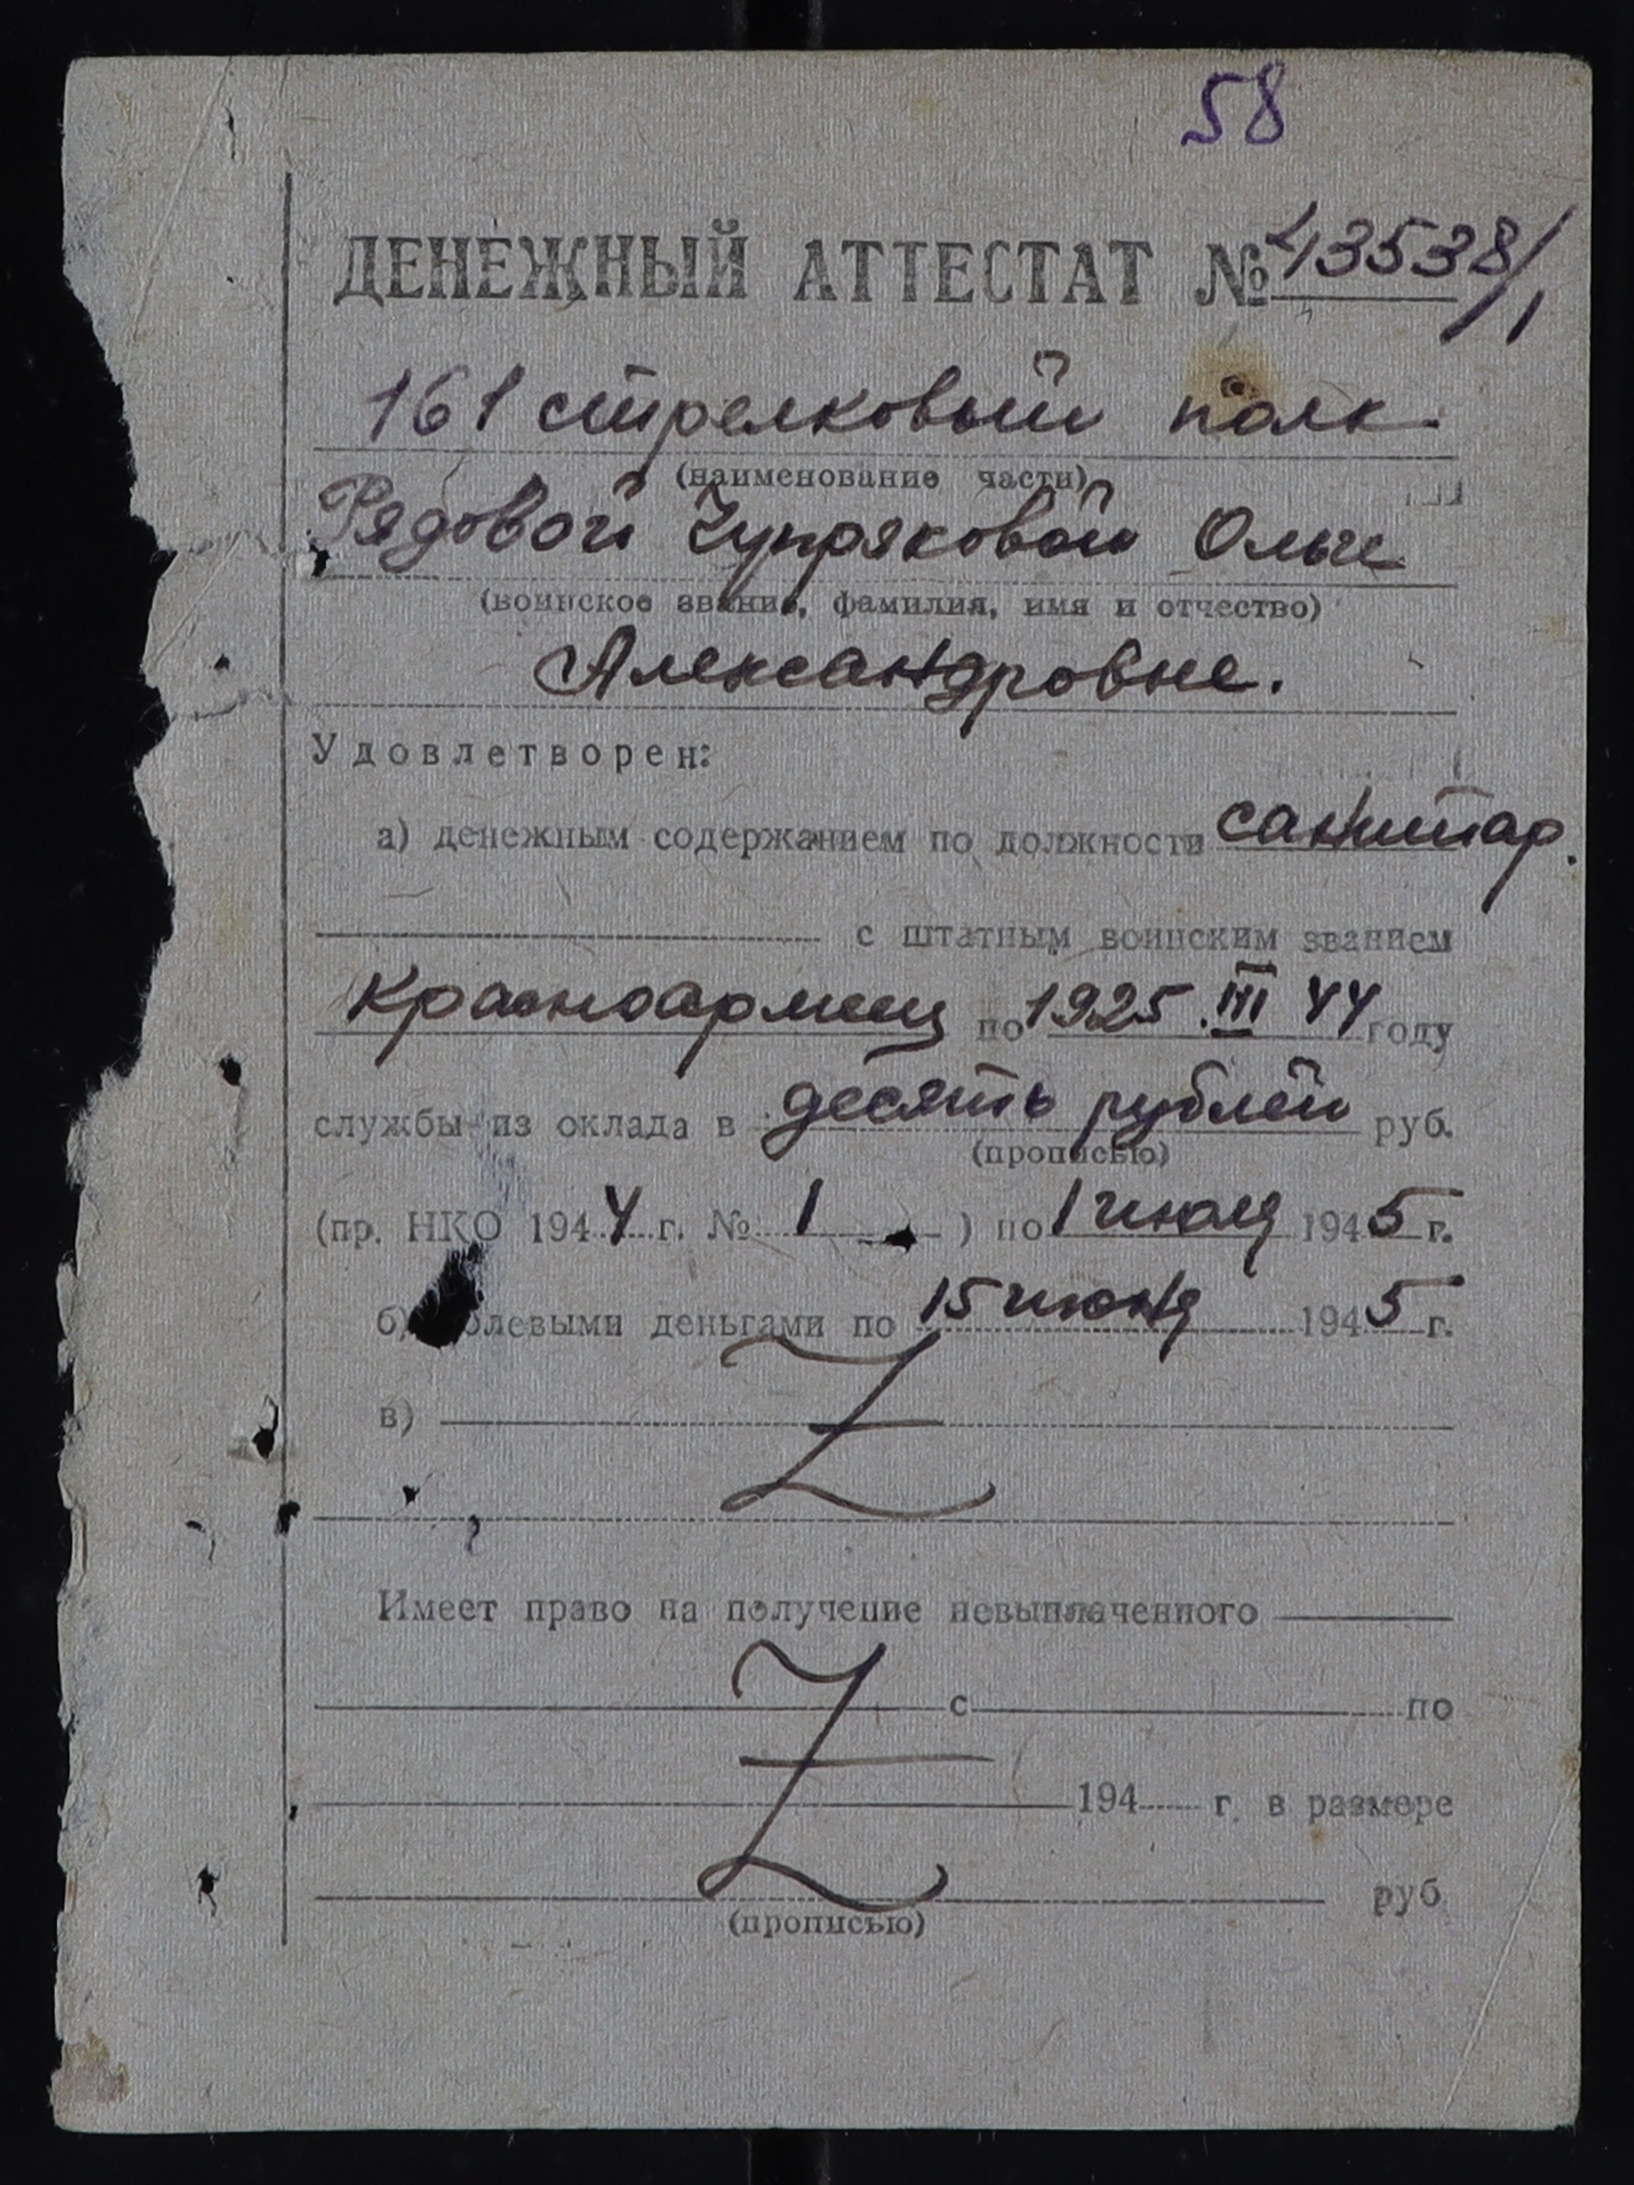 58
ДЕНЕЖНЫЙ АТТЕСТАТ № 43538/1
161 стрелковый полк
(наименование части)
Рядовой Чупряковой Ольге
(воинское звание, фамилия, имя и отчество)
Александровне.
Удовлетворен:
а) денежным содержанием по должности санитар.
с штатным воинским званием
Красноармеец по 1925. III 44 году
службы из оклада в десять рублей руб.
(прописью)
(пр. НКО 1944 г. № 1 ) по 1 июля 1945 г.
б) полевыми деньгами по 15 июня 1945 г.
в) Z
Имеет право на получение невыплаченного
Z с по
194 г. в размере
руб
(прописью)